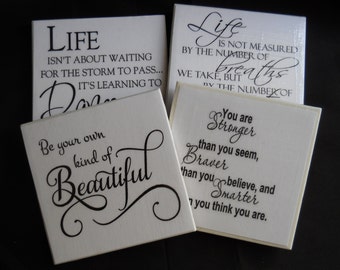 LIFE
ISN'T ABOUT WAITING
FOR THE STORM TO PASS...
IT'S LEARNING TO
Life
IS NOT MEASURED
BY THE NUMBER OF
breaths
WE TAKE, BUT
BY THE NUMBER OF
Be your own
kind of
Beautiful
You are
Stronger
than you seem,
Braver
than you believe, and
Smarter
you think you are.